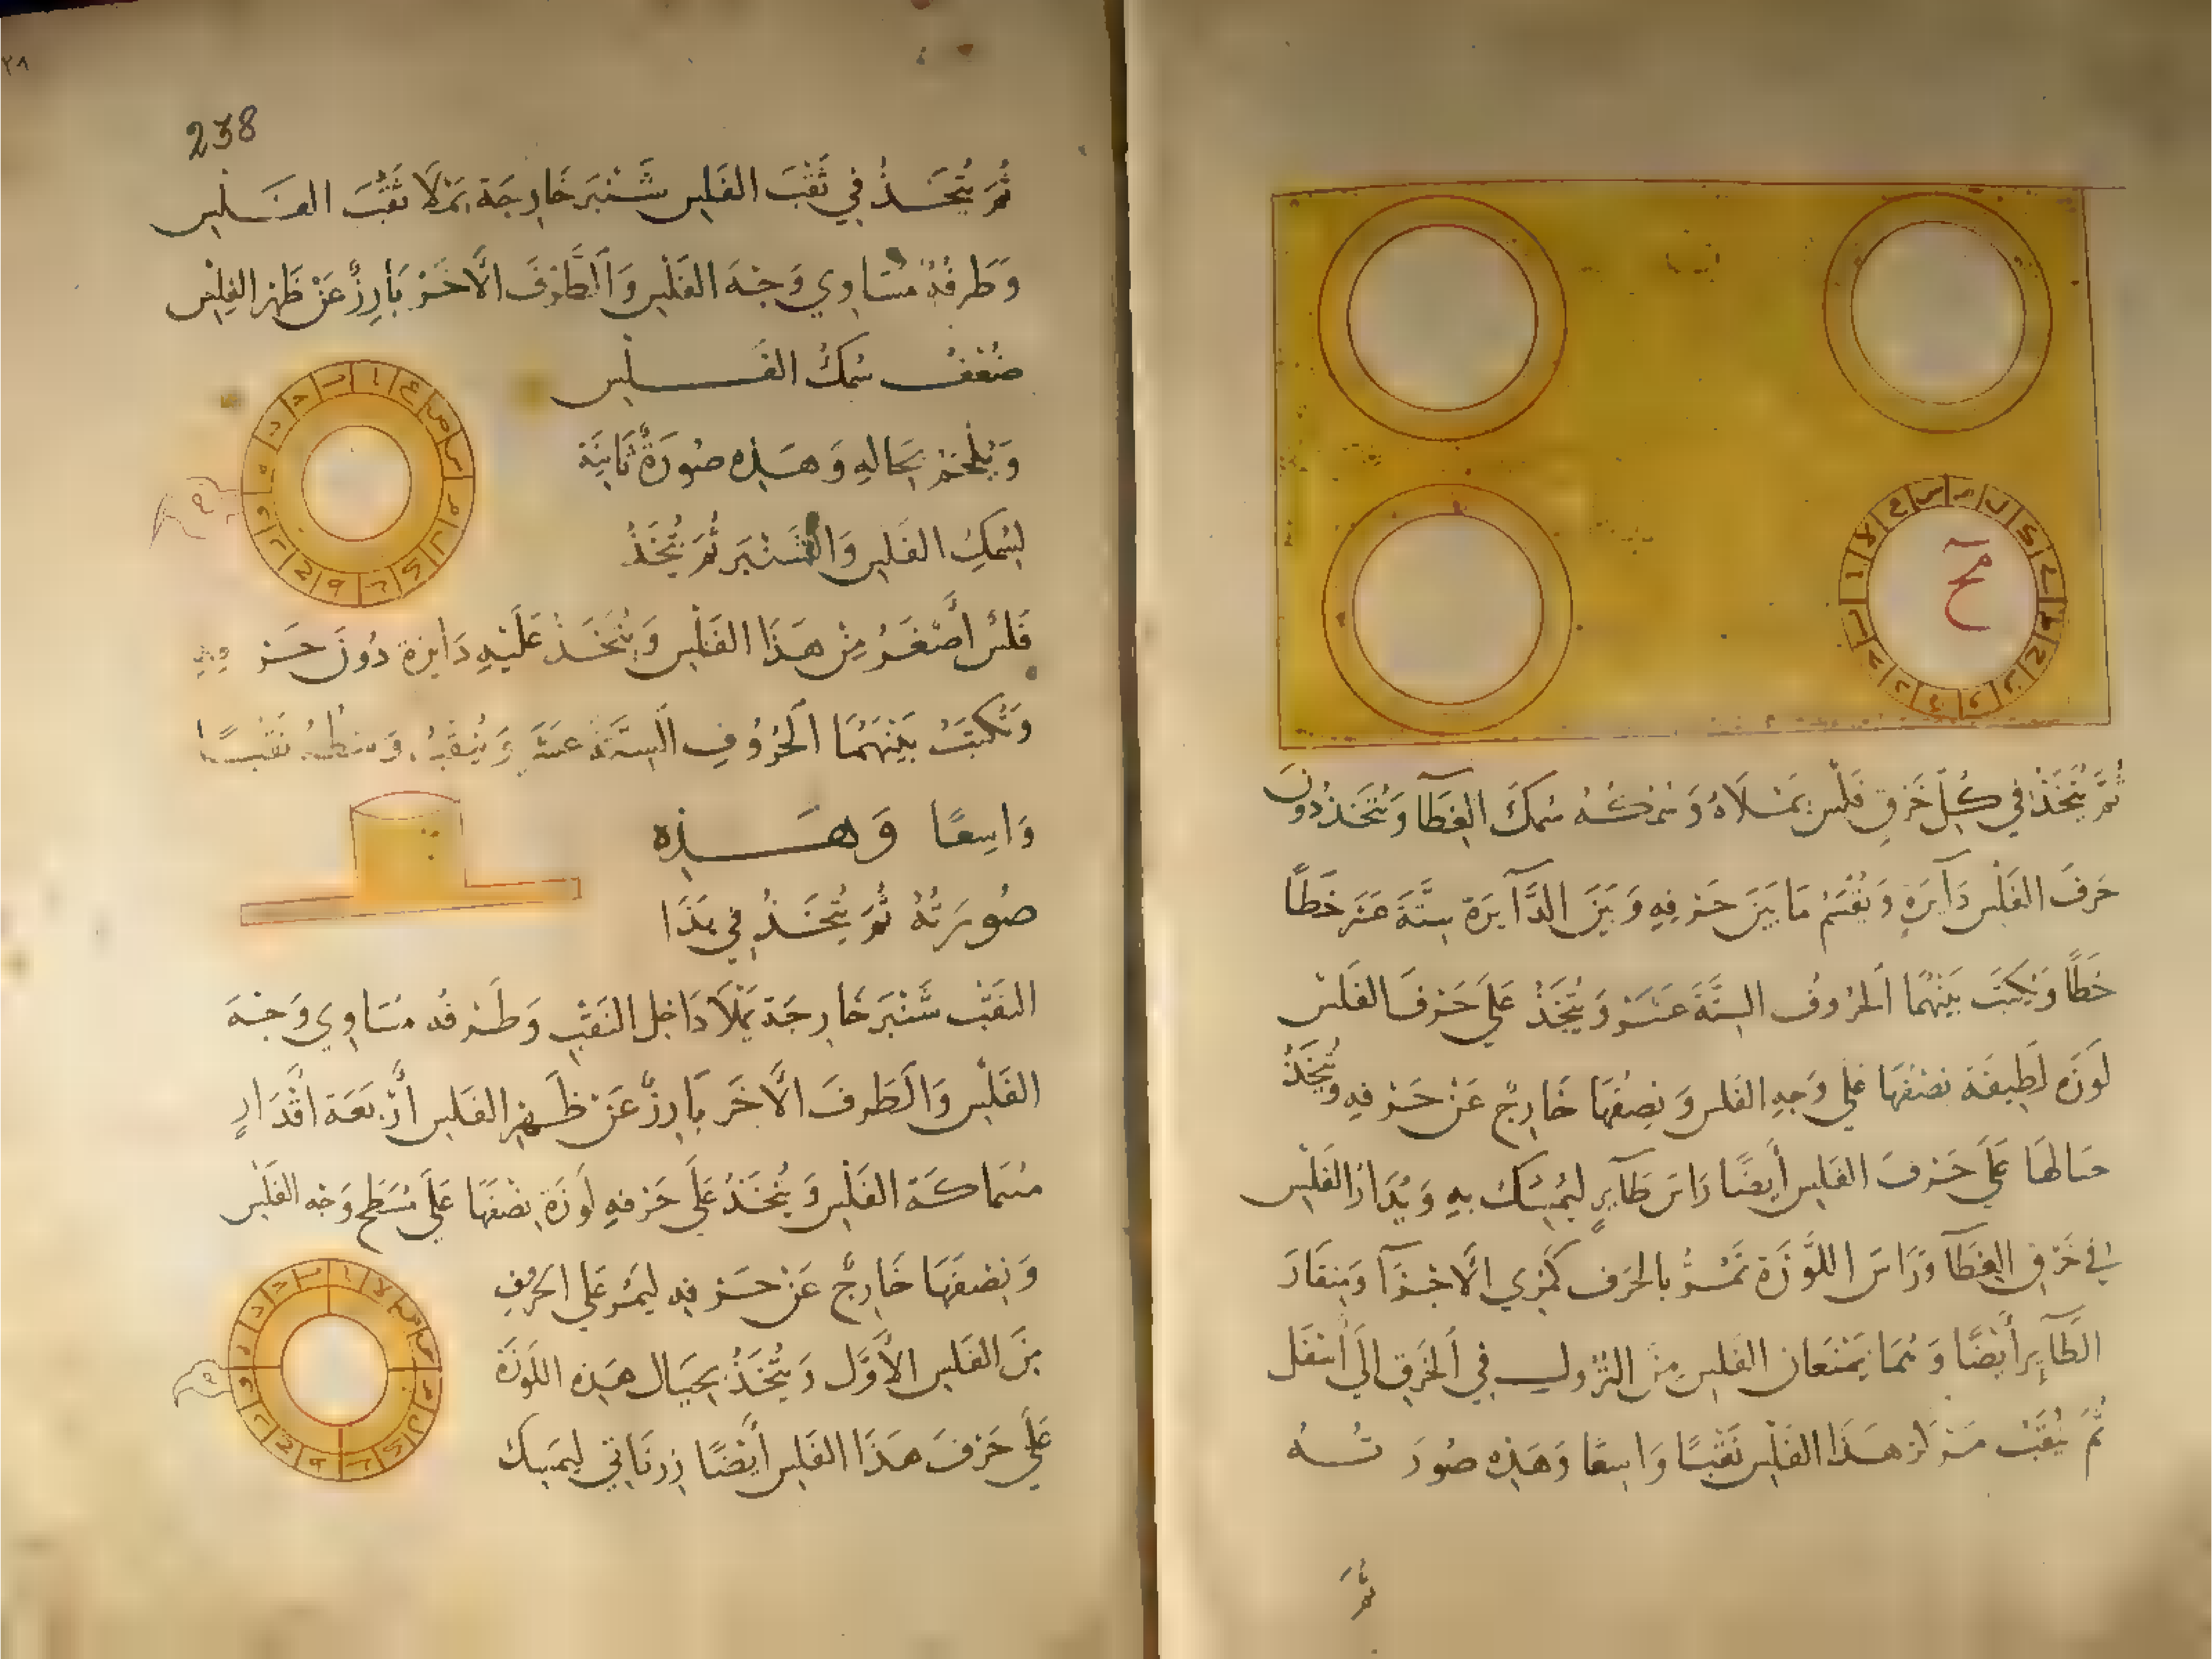 ثُمَّ يُتَّخَذُ في كُلِّ خَرْقٍ فَلْس يَمْلَاهُ وَسُمْكُهُ سُمكَ الغِطَآ وَيُتَّخَذُ دُونَ
حَرفَ الفَلْسِ دَآيَرَةٍ وَيُقْسَمُ مَا بَيَنَ حَرفِهِ وَبَيَنَ الدَّآيَرَة سِتَّةَ عَشَر خَطًا
خَطًا وَيَكتبَ بَينهُمَا الحُرُوفُ السِتَّةَ عَشَر وَيُتَّخَذُ عَلَي حَرْفَ الفَلس
لَوزَه لَطِيفَة نِصْفُهَا عَلي وَجهِ الفلس وَنِصفُهَا خَارِجٌ عَنْ حَرفِهِ وَيُتَّخَذُ
حيَالهَا عَلَي حَرفَ الفَلِس أيضًا رَاسَ طَآيرٍ ليُمسَك بِهِ وَيُدَارُ الفَلْس
في خَرْقِ الغِطَآ وَرَاسَ اللَّوزَة تَمُرُّ بالحَرف كَمُري الَاجْزَآ وَمِنقَارَ
الطَآيِرِ أَيْضًا وَهُمَا يَمْنَعَانِ الفَلِسِ مِنَ النُزُولِ في الخَرقِ الَي اَسْفَل
ثُمَّ يُثقَبْ مَركَز هَذَا الفَلْسِ ثَقْبًا وَاسِعًا وَهَذِهِ صُورَتُهُ
ثُمَّ
ح
238
ثُمَّ يُتَّخَذُ في ثَقْبَ الفَلِس شَنْبَرَ خَارِجَة يَمْلَا ثَقْبَ الفَلِس
وَطَرفُهُ مُسَاوِي وَجْهَ الفَلْس وَالطَّرَفَ الاَّخَرْ بَارِزٌ عَنْ ظَهرِ الفِلْسِ
ضُعْفُ سُمكُ الفَلْس
وَيُلحَمْ بِحَالِهِ وَهَذِهِ صُورَةٌ ثَانِيَة
لِسُمكِ الفَلِس وَالشَنْبَر ثُمَّ يُتَّخَذُ
فَلسٌ أَصْغَرُ مِنْ هَذَا الفَلْس وَيُتَّخَذُ عَلَيْهِ دَايرة دُونَ حَرفِهِ
وَتُكْتَبُ بَيْنَهُمَا الحُرُوفِ السِتَةَ عَشَر وَيُثقَبُ وَسَطُهُ ثَقْبًا
وَاسِعًا وَهَذِهِ
صُورَتُهُ ثُمَّ يُتَّخَذُ في هَذَا
الثَقْبْ شَنْبَر خَارِجَة يَمْلَا دَاخِل الثَقْبِ وَطَرفُه مُسَاوِي وَجْهَ
الفَلْسِ وَالطَرفَ الاَّخَر بَارِزٌ عَنْ ظَهرِ الفَلس أَرْبَعَة اقْدَارِ
سَمَاكَة الفَلْس وَيُتَّخَذُ عَلَي حَرْفهِ لَوزَة نِصْفَهَا عَلَي مُسَطحِ وَجْه الفَلْس
وَنِصْفَهَا خَارِجٌ عَنْ حَرفِهِ لِيَمُر عَلَي الحَرْفِ
مِنَ الفَلِس الأَوَّل وَيُتَّخَذُ بِحِيَال هَذِهِ اللَوزَةَ
عَلَي حَرْفَ هَذَا الفَلِس أَيْضًا زِرنَاتي لِيمسِك